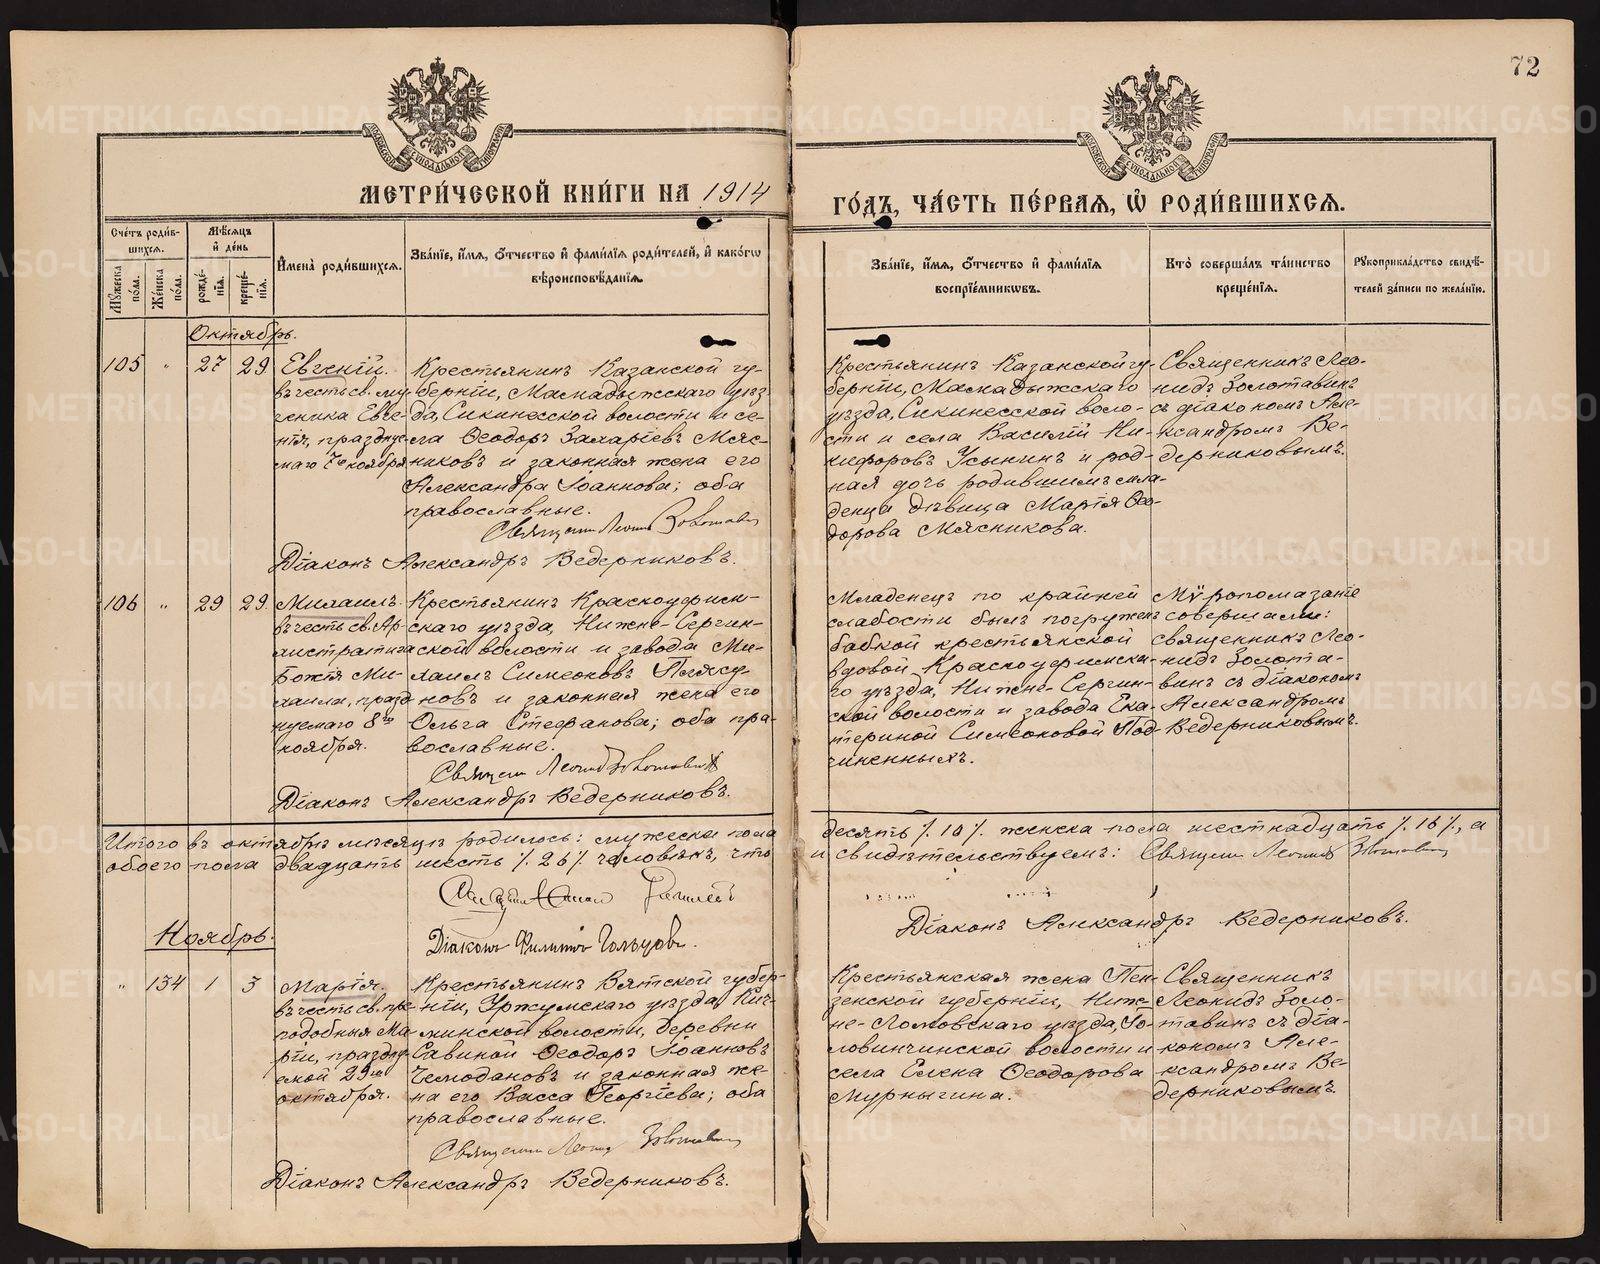 72
МЕТРИ́ЧЕСКОЙ КНИ́ГИ НА 1914
ГО́ДЪ, ЧА́СТЬ ПЕ́РВАЯ, Ѡ РОДИ́ВШИХСЯ.
Сче́тъ роди́в-
шихся.
Му́жеска по́ла.
Же́нска по́ла.
Мѣ́сяцъ
и де́нь
рожде́нїя.
креще́нїя.
И҆мена̀ роди́вшихся.
Зва́нїе, и҆́мя, о҆́тчество и҆ фами́лїя роди́телей, и҆ како́гѡ
вѣроисповѣ́данїя.
Зва́нїе, и҆́мя, о҆́тчество и҆ фами́лїя
воспрїе́мникѡвъ.
Кто̀ соверша́лъ та́инство
креще́нїя.
Рꙋкоприкла́дство свидѣ́-
телей за́писи по жела́нїю.
Октябрь.
105 " 27 29
Евгеній.
въ честь св. му-
ченика Евге-
нія, праздную-
маго 7го ноября
Крестьянинъ Казанской гу-
берніи, Мамадыжскаго уѣз-
да, Сикинесской волости и се-
ла Ѳеодоръ Захаріевъ Мяс-
никовъ и законная жена его
Александра Іоаннова; оба
православные.
Священн Леонид Золотавин
Діаконъ Александръ Ведерниковъ.
Крестьянинъ Казанской гу-
берніи, Мамадыжскаго
уѣзда, Сикинесской воло-
сти и села Василій Ни-
кифоровъ Усынинъ и род-
ная дочь родившимъ мла-
денца дѣвица Марія Ѳео-
дорова Мясникова.
Священникъ Лео-
нидъ Золотавинъ
съ діакономъ Але-
ксандромъ Ве-
дерниковымъ.
106 " 29 29
Михаилъ.
въ честь св. Ар-
хистратига
Божія Ми-
хаила, празд-
нуемаго 8го
ноября.
Крестьянинъ Красноуфим-
скаго уѣзда, Нижне-Сергин-
ской волости и завода Ми-
хаилъ Симеоновъ Плясу-
новъ и законная жена его
Ольга Стефанова; оба пра-
вославные.
Священн Леонид Золотавин
Діаконъ Александръ Ведерниковъ.
Младенецъ по крайней
слабости былъ погруженъ
бабкой крестьянской
вдовой Красноуфимска-
го уѣзда, Нижне-Сергин-
ской волости и завода Ека-
териной Симеоновой Под-
чиненныхъ.
Мѵропомазаніе
совершали:
священникъ Лео-
нидъ Золота-
винъ съ діакономъ
Александромъ
Ведерниковымъ.
Итого въ октябрѣ мѣсяцѣ родилось: мужеска пола десять /. 10 /. женска пола шестнадцать /. 16 /., а
обоего пола двадцать шесть /. 26 /. человѣкъ, что и свидѣтельствуемъ: Священн Леонид Золотавин
Діаконъ Александръ Ведерниковъ.
Діаконъ Филиппъ Гольцовъ.
Ноябрь.
" 134 1 3
Марія.
въ честь св. пре-
подобныя Ма-
ріи, праздну-
емой 29го
октября.
Крестьянинъ Вятской губер-
ніи, Уржумскаго уѣзда, Кич-
минской волости, деревни
Савиной Ѳеодоръ Іоанновъ
Чемодановъ и законная же-
на его Васса Георгіева; оба
православные.
Священн Леонид Золотавин
Діаконъ Александръ Ведерниковъ.
Крестьянская жена Пен-
зенской губерніи, Ниж-
не-Ломовскаго уѣзда, Го-
ловинчинской волости и
села Елена Ѳеодорова
Мурныгина.
Священникъ
Леонидъ Золо-
тавинъ съ діа-
кономъ Але-
ксандромъ Ве-
дерниковымъ.
METRIKI.GASO-URAL.RU